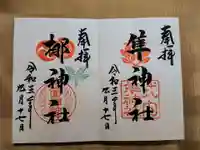 奉拝
隼神社
令和三年
九月十七日
奉拝
都神社
令和三年
九月十七日